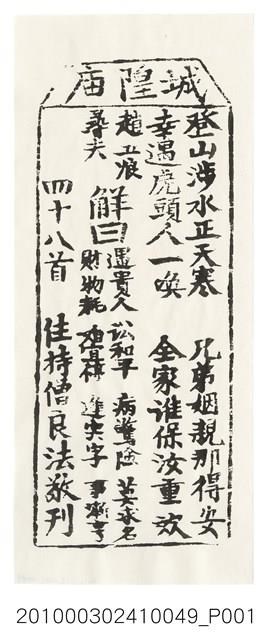 城隍庙
登山涉水正天寒 兄弟姻親那得安
幸遇虎頭人一喚 全家誰保汝重歡
趙五娘尋夫
解曰 遇貴人 訟和平 病驚險 莫求名
財物耗 婚 逢寅字 事漸亨
四十八首 住持僧良法敬刊
201000302410049_P001